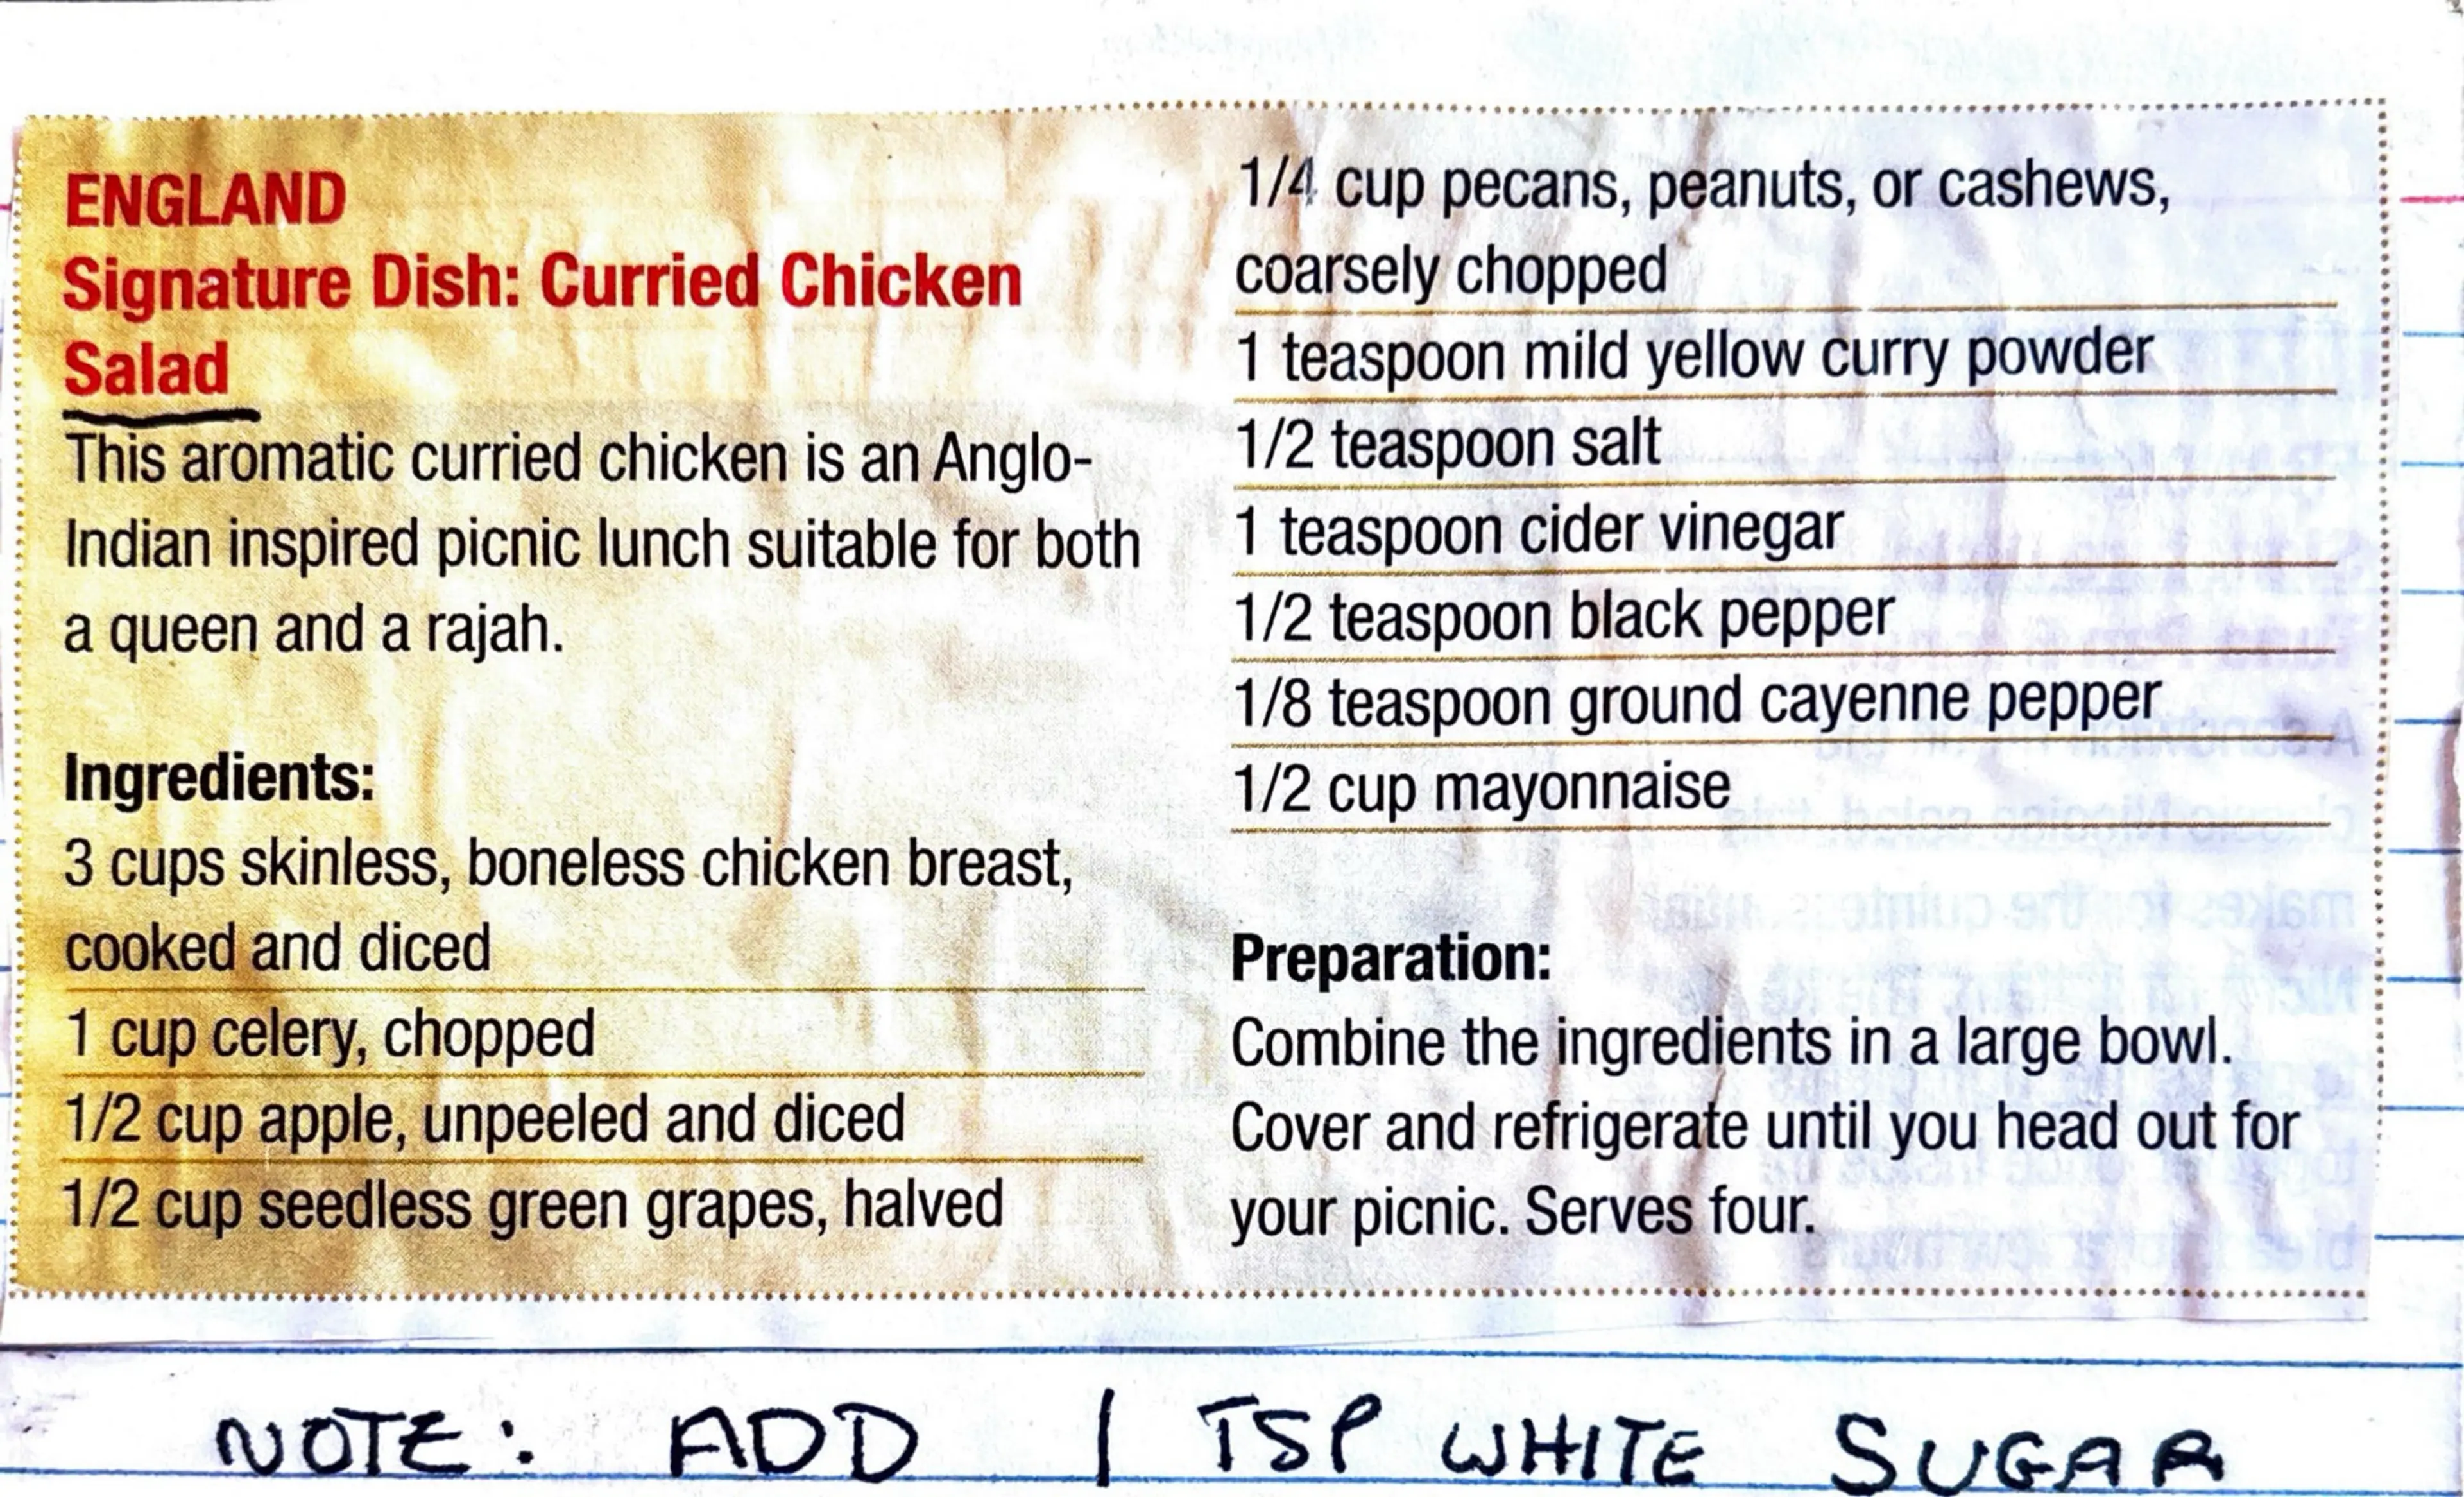 ENGLAND
Signature Dish: Curried Chicken
Salad
This aromatic curried chicken is an Anglo-
Indian inspired picnic lunch suitable for both
a queen and a rajah.
Ingredients:
3 cups skinless, boneless chicken breast,
cooked and diced
1 cup celery, chopped
1/2 cup apple, unpeeled and diced
1/2 cup seedless green grapes, halved
1/4 cup pecans, peanuts, or cashews,
coarsely chopped
1 teaspoon mild yellow curry powder
1/2 teaspoon salt
1 teaspoon cider vinegar
1/2 teaspoon black pepper
1/8 teaspoon ground cayenne pepper
1/2 cup mayonnaise
Preparation:
Combine the ingredients in a large bowl.
Cover and refrigerate until you head out for
your picnic. Serves four.
NOTE: ADD 1 TSP WHITE SUGAR